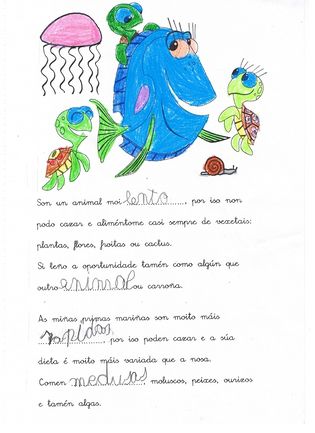 Son un animal moi lento, por iso non
podo cazar e aliméntome casi sempre de vexetais:
plantas, flores, froitas ou cactus.
Si teño a oportunidade tamén como algún que
outro animal ou carroña.
As miñas primas mariñas son moito máis
rápidas, por iso poden cazar e a súa
dieta é moito máis variada que a nosa.
Comen medusas, moluscos, peixes, ourizos
e tamén algas.